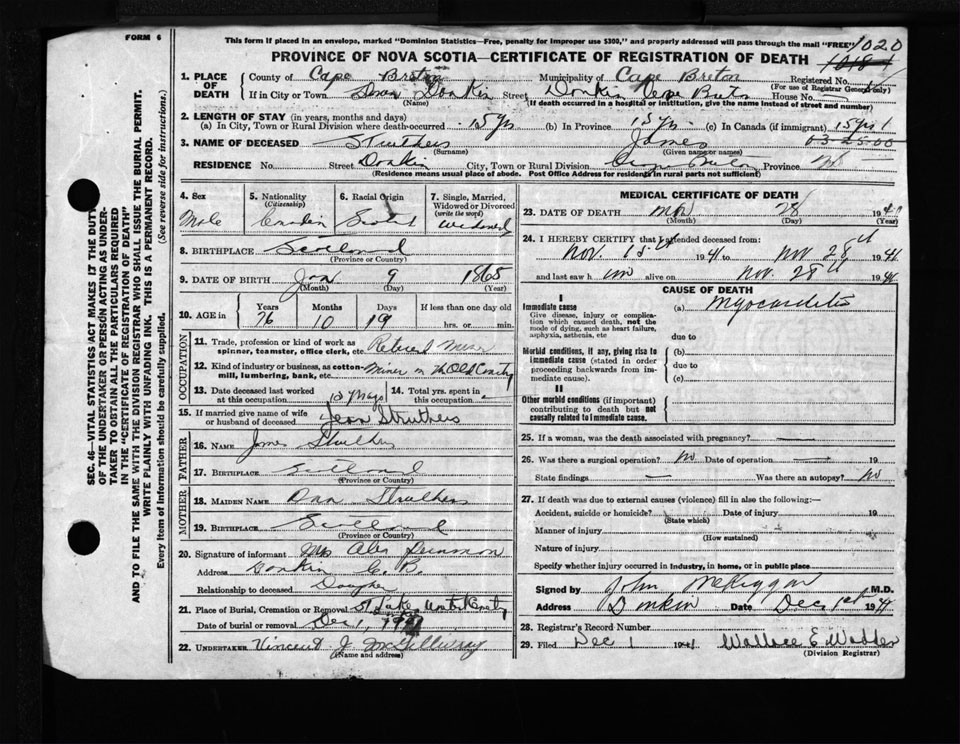 FORM 6
This form if placed in an envelope, marked "Dominion Statistics—Free, penalty for improper use $300," and properly addressed will pass through the mail "FREE"
1020
PROVINCE OF NOVA SCOTIA—CERTIFICATE OF REGISTRATION OF DEATH
1018
1. PLACE OF DEATH
County of Cape Breton Municipality of Cape Breton Registered No.
(For use of Registrar General only)
If in City or Town Donkin Street Donkin Cape Breton House No.
(Name) (If death occurred in a hospital or institution, give the name instead of street and number)
2. LENGTH OF STAY (in years, months and days)
(a) In City, Town or Rural Division where death occurred 15 yrs (b) In Province 15 yrs (c) In Canada (if immigrant) 15 yrs
3. NAME OF DECEASED Struthers James 03-25-00
(Surname) (Given name or names)
RESIDENCE No. Street Donkin City, Town or Rural Division Cape Breton Province NS
(Residence means usual place of abode. Post Office Address for residents in rural parts not sufficient)
4. Sex Male
5. Nationality (Citizenship)
6. Racial Origin Scotch
7. Single, Married, Widowed or Divorced (write the word) Widowed
8. BIRTHPLACE Scotland
(Province or Country)
9. DATE OF BIRTH Jan 9 1865
(Month) (Day) (Year)
10. AGE Years 76 Months 10 Days 19 If less than one day old
hrs. or min.
OCCUPATION
11. Trade, profession or kind of work as spinner, teamster, office clerk, etc. Retired Miner
12. Kind of industry or business, as cotton-mill, lumbering, bank, etc. Miner in the Old Country
13. Date deceased last worked at this occupation
14. Total yrs. spent in this occupation
15. If married give name of wife or husband of deceased Jean Struthers
FATHER
16. NAME James Struthers
17. BIRTHPLACE Scotland
(Province or Country)
MOTHER
18. MAIDEN NAME Ann Struthers
19. BIRTHPLACE Scotland
(Province or Country)
20. Signature of informant Mrs Alex
Address Donkin C. B.
Relationship to deceased Daughter
21. Place of Burial, Cremation or Removal St Lukes
Date of burial or removal Dec 1, 1941
22. UNDERTAKER Vincent J McGillivray
(Name and address)
MEDICAL CERTIFICATE OF DEATH
23. DATE OF DEATH Nov 28 1941
(Month) (Day) (Year)
24. I HEREBY CERTIFY that I attended deceased from:
Nov. 15th 1941 to Nov 28th 1941
and last saw him alive on Nov. 28th 1941
CAUSE OF DEATH
I
Immediate cause (a) Myocarditis
Give disease, injury or complication which caused death, not the mode of dying, such as heart failure, asphyxia, asthenia, etc
due to
Morbid conditions, if any, giving rise to immediate cause (stated in order proceeding backwards from immediate cause). (b)
due to
(c)
II
Other morbid conditions (if important) contributing to death but not causally related to immediate cause.
25. If a woman, was the death associated with pregnancy?
26. Was there a surgical operation? No Date of operation 19
State findings — Was there an autopsy? No
27. If death was due to external causes (violence) fill in also the following:—
Accident, suicide or homicide? Date of injury 19
(State which)
Manner of injury
(How sustained)
Nature of injury
Specify whether injury occurred in industry, in home, or in public place
Signed by John McKiggan M.D.
Address Donkin Date Dec 1st 1941
28. Registrar's Record Number
29. Filed Dec 1 1941 Wallace E Wadden
(Division Registrar)
SEC. 46—VITAL STATISTICS ACT MAKES IT THE DUTY
OF THE UNDERTAKER OR PERSON ACTING AS UNDER-
TAKER TO OBTAIN ALL THE PARTICULARS REQUIRED
IN THE "CERTIFICATE OF REGISTRATION OF DEATH"
AND TO FILE THE SAME WITH THE DIVISION REGISTRAR WHO SHALL ISSUE THE BURIAL PERMIT.
WRITE PLAINLY WITH UNFADING INK. THIS IS A PERMANENT RECORD.
Every item of information should be carefully supplied. (See reverse side for instructions.)